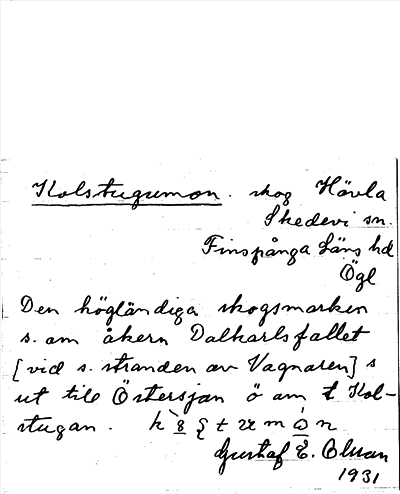 Kolstugumon. skog Hävla
Skedevi sn.
Finspånga läns hd
Ögl
Den högländiga skogsmarken
s. om åkern Dalkarlsfallet
[vid s. stranden av Vagnaren] s
ut till Östersjön ö om t Kol-
stugan.
Gustaf E. Olsson
1931